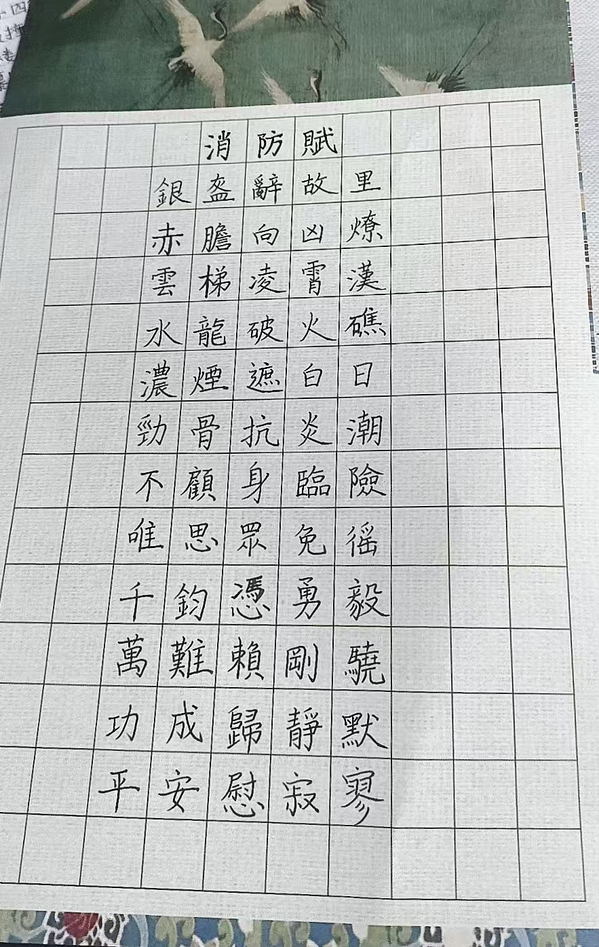 消防賦
銀盔辭故里
赤膽向凶燎
雲梯凌霄漢
水龍破火礁
濃煙遮白日
勁骨抗炎潮
不顧身臨險
唯思眾免徭
千鈞憑勇毅
萬難賴剛驍
功成歸靜默
平安慰寂寥